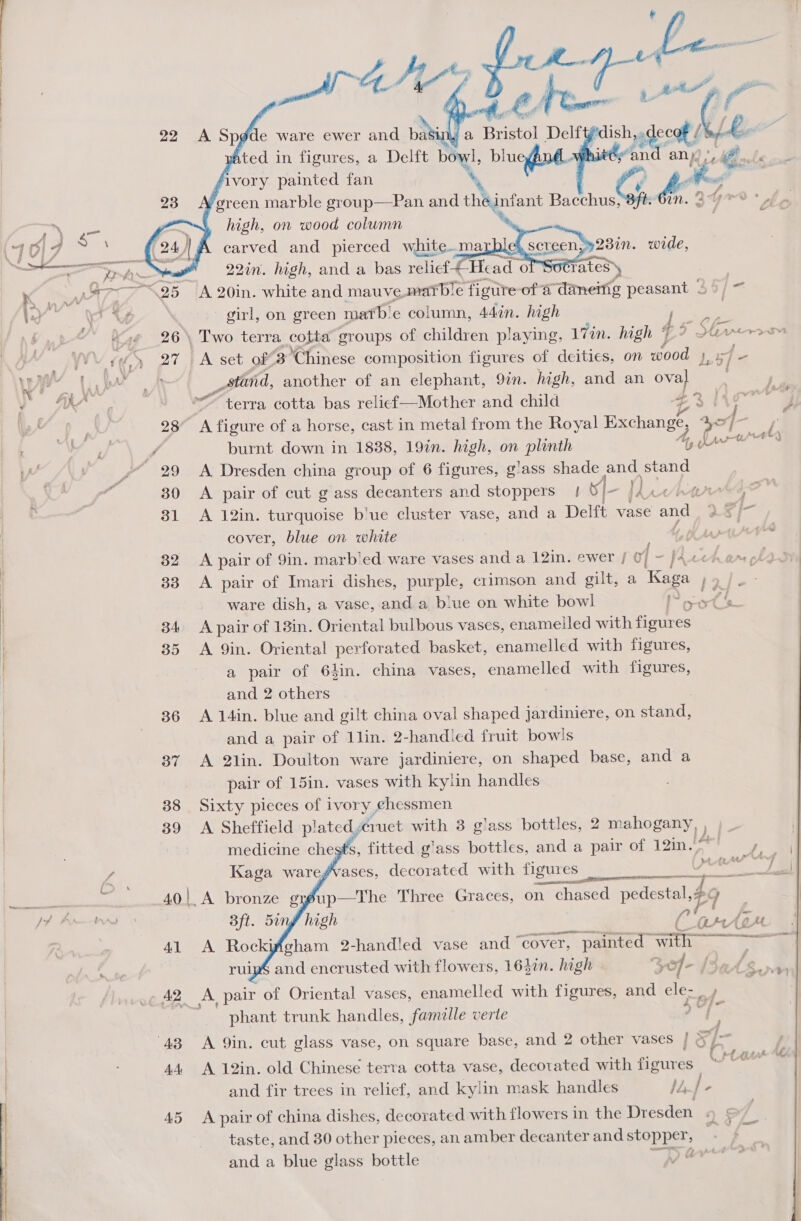 22 A Spode ware ewer and basin, a Bristol Delft dish, decor
ated in figures, a Delft bowl, blue and white, and an
ivory painted fan
23 A green marble group—Pan and the infant Bacchus, 3ft. 6in.
high, on wood column
24 A carved and pierced white marble screen, 23in. wide,
22in. high, and a bas relief—Head of Socrates
25 A 20in. white and mauve marble figure of a dancing peasant
girl, on green marble column, 44in. high
26 Two terra cotta groups of children playing, 17in. high
27 A set of 3 Chinese composition figures of deities, on wood
stand, another of an elephant, 9in. high, and an oval
terra cotta bas relief—Mother and child
28 A figure of a horse, cast in metal from the Royal Exchange,
burnt down in 1838, 19in. high, on plinth
29 A Dresden china group of 6 figures, glass shade and stand
30 A pair of cut g ass decanters and stoppers
31 A 12in. turquoise blue cluster vase, and a Delft vase and
cover, blue on white
32 A pair of 9in. marbled ware vases and a 12in. ewer
33 A pair of Imari dishes, purple, crimson and gilt, a Kaga
ware dish, a vase, and a blue on white bowl
34 A pair of 13in. Oriental bulbous vases, enamelled with figures
35 A 9in. Oriental perforated basket, enamelled with figures,
a pair of 6½in. china vases, enamelled with figures,
and 2 others
36 A 14in. blue and gilt china oval shaped jardiniere, on stand,
and a pair of 11in. 2-handled fruit bowls
37 A 21in. Doulton ware jardiniere, on shaped base, and a
pair of 15in. vases with kylin handles
38 Sixty pieces of ivory chessmen
39 A Sheffield plated cruet with 3 glass bottles, 2 mahogany
medicine chests, fitted glass bottles, and a pair of 12in.
Kaga ware vases, decorated with figures
40 A bronze group—The Three Graces, on chased pedestal,
3ft. 5in. high
41 A Rockingham 2-handled vase and cover, painted with
ruins and encrusted with flowers, 16½in. high
42 A pair of Oriental vases, enamelled with figures, and ele-
phant trunk handles, famille verte
43 A 9in. cut glass vase, on square base, and 2 other vases
44 A 12in. old Chinese terra cotta vase, decorated with figures
and fir trees in relief, and kylin mask handles
45 A pair of china dishes, decorated with flowers in the Dresden
taste, and 30 other pieces, an amber decanter and stopper,
and a blue glass bottle